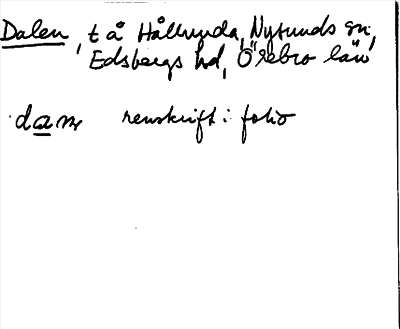 Dalen, t å Hållunda, Nysunds sn,
Edsbergs hd, Örebro län
dam renskrift i folio